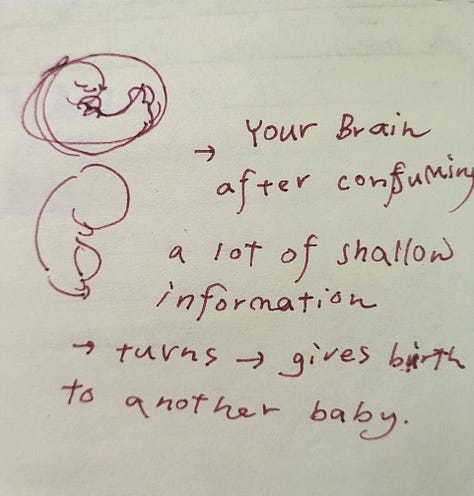 → Your Brain
after consuming
a lot of shallow
information
→ turns → gives birth
to another baby.